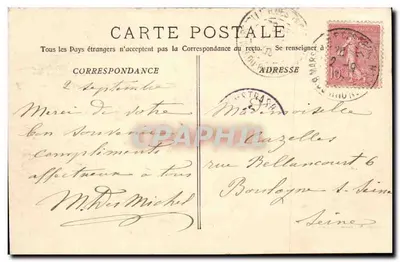 CARTE POSTALE
Tous les Pays étrangers n'acceptent pas la Correspondance au recto. Se renseigner à
CORRESPONDANCE
ADRESSE
2 Septembre
Merci de votre
bon souvenir
compliments
affectueux à tous
M. Des Michel
Mademoiselle
Cazelles
rue Bellancourt 6
Boulogne s. Seine
Seine
CPAPHIL
10